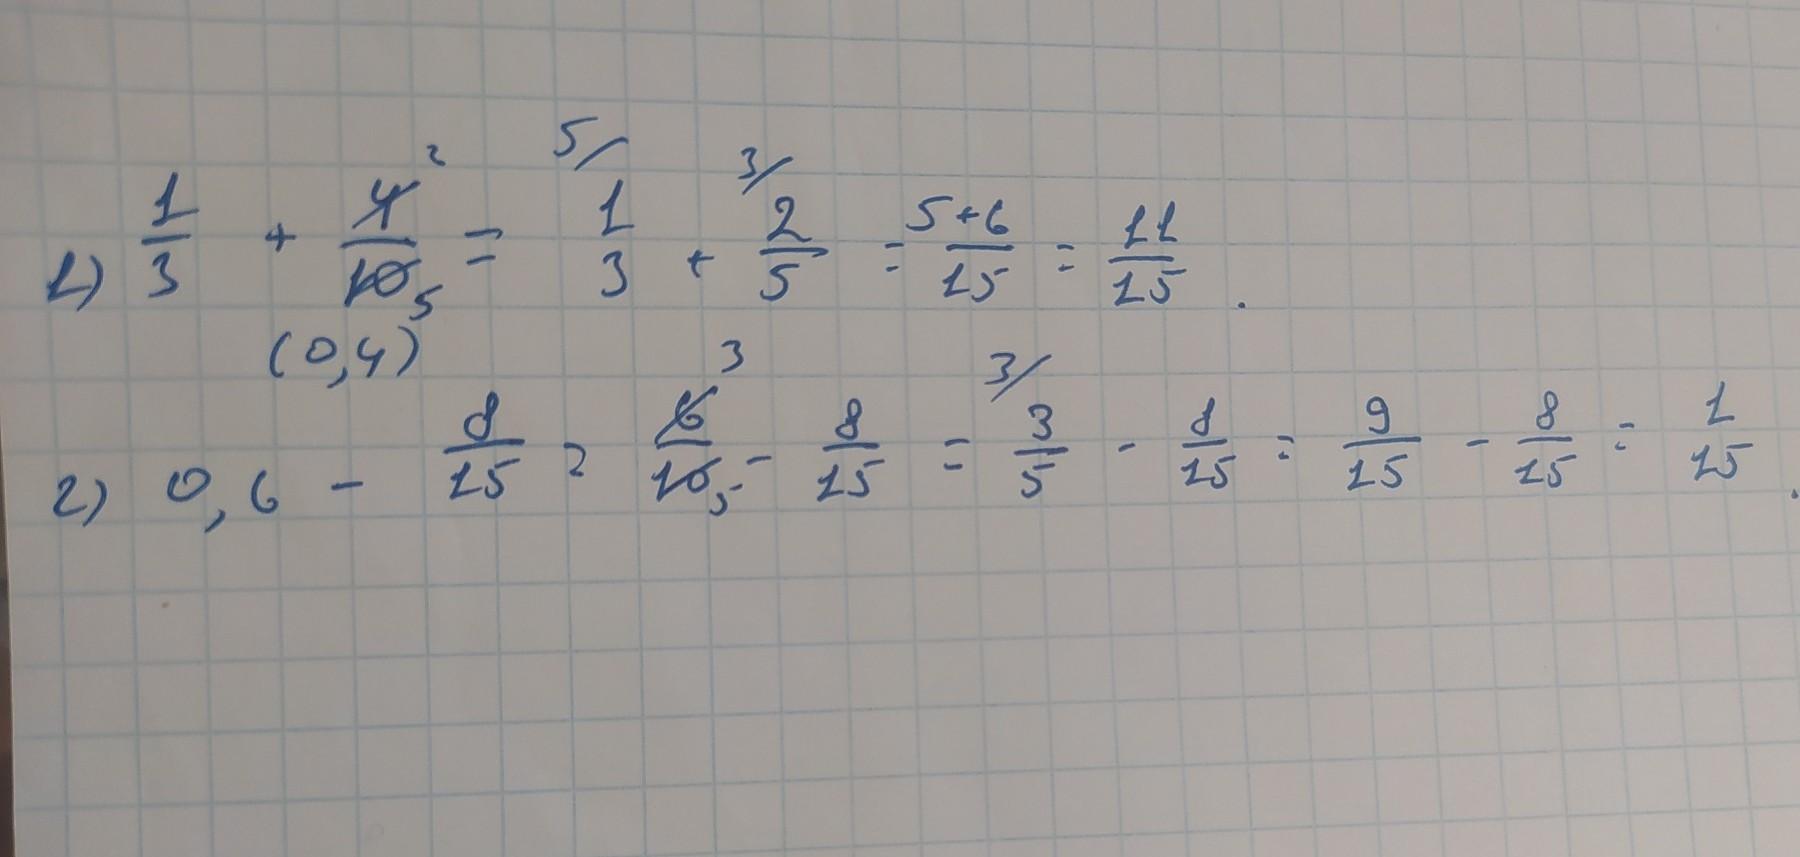 1) 1/3 + 4/10 2 5 = 5/ 1/3 + 3/ 2/5 = 5+6/15 = 11/15.
(0,4)
2) 0,6 - 8/15 = 6/10 3 5 - 8/15 = 3/ 3/5 - 8/15 = 9/15 - 8/15 = 1/15.